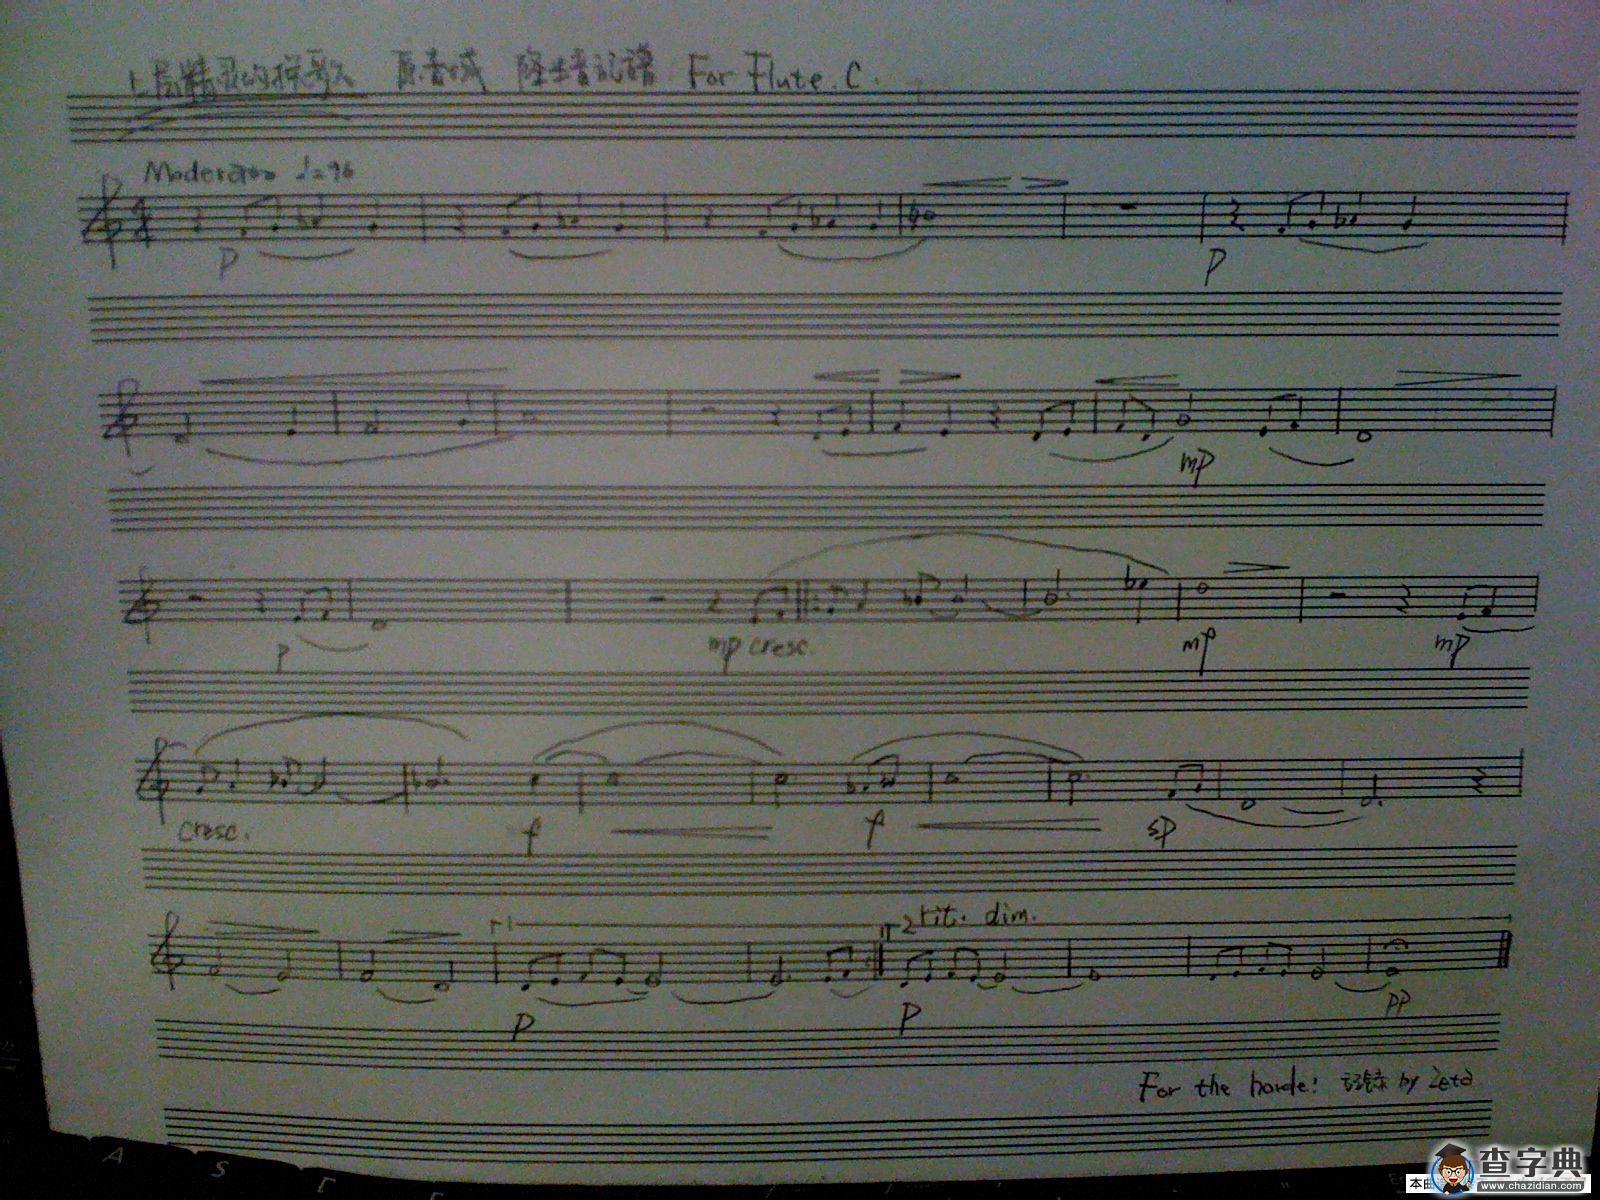 上层精灵的挽歌 原音域 降B音记谱 For Flute.C.
Moderato ♩=96
p p
mp
p mp cresc. mp mp
cresc. f f sp
1 2 rit. dim.
p p pp
For the horde! 记录 by Zeta
A S
查字典
www.chazidian.com